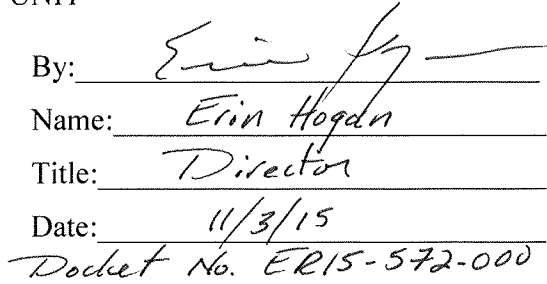 UNIT
By: Erin Hogan
Name: Erin Hogan
Title: Director
Date: 11/3/15
Docket No. ER15-572-000